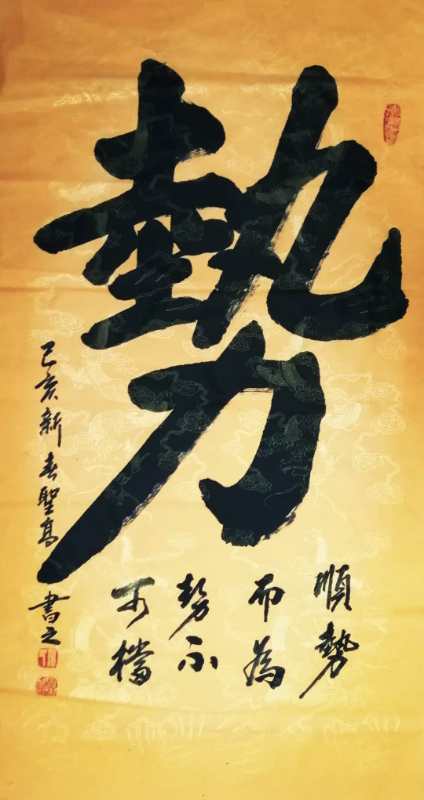 勢
順勢
而為
勢不
可擋
己亥新春聖高書之